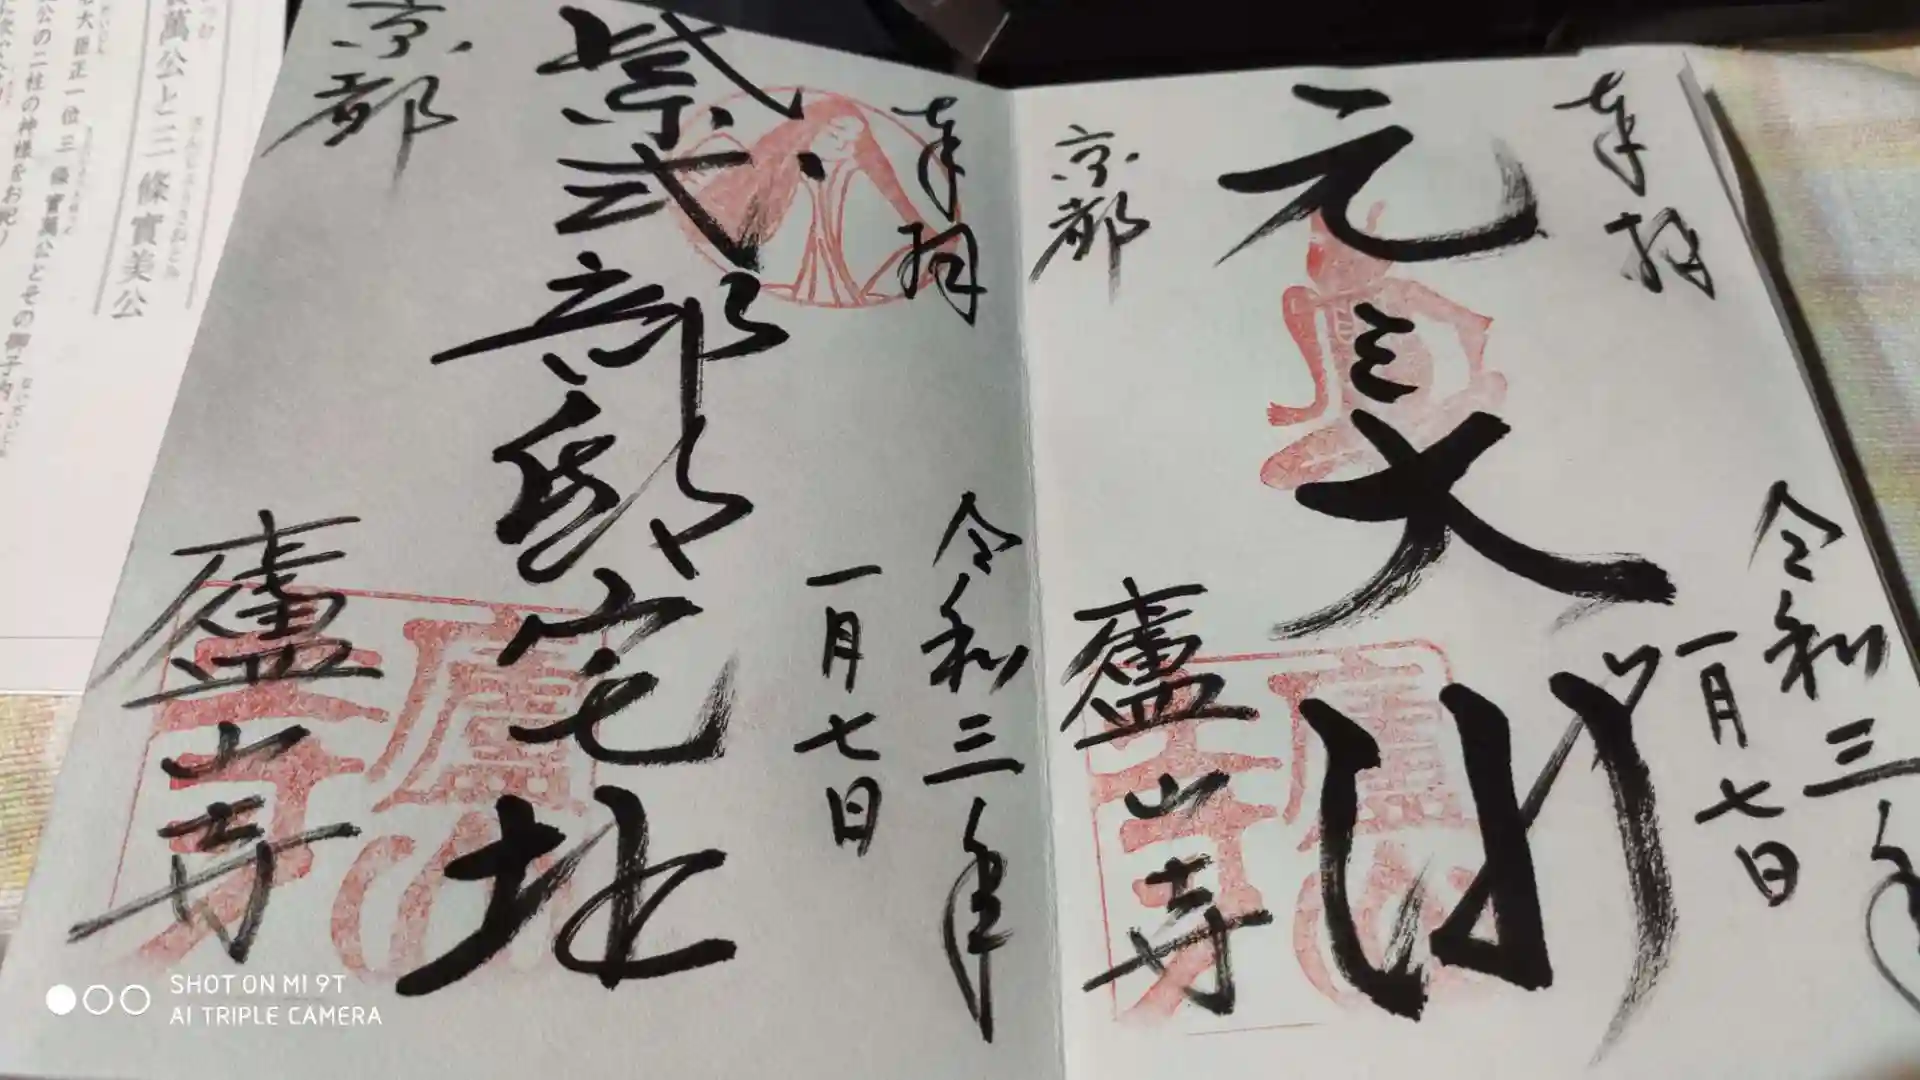 奉拝
令和三年
一月七日
元三大師
京都
廬山寺
奉拝
令和三年
一月七日
紫式部邸宅址
京都
廬山寺
萬公と三條實美公
大臣正一位三條實萬公とその御子内
公の二柱の神様をお祀り
SHOT ON MI 9T
AI TRIPLE CAMERA